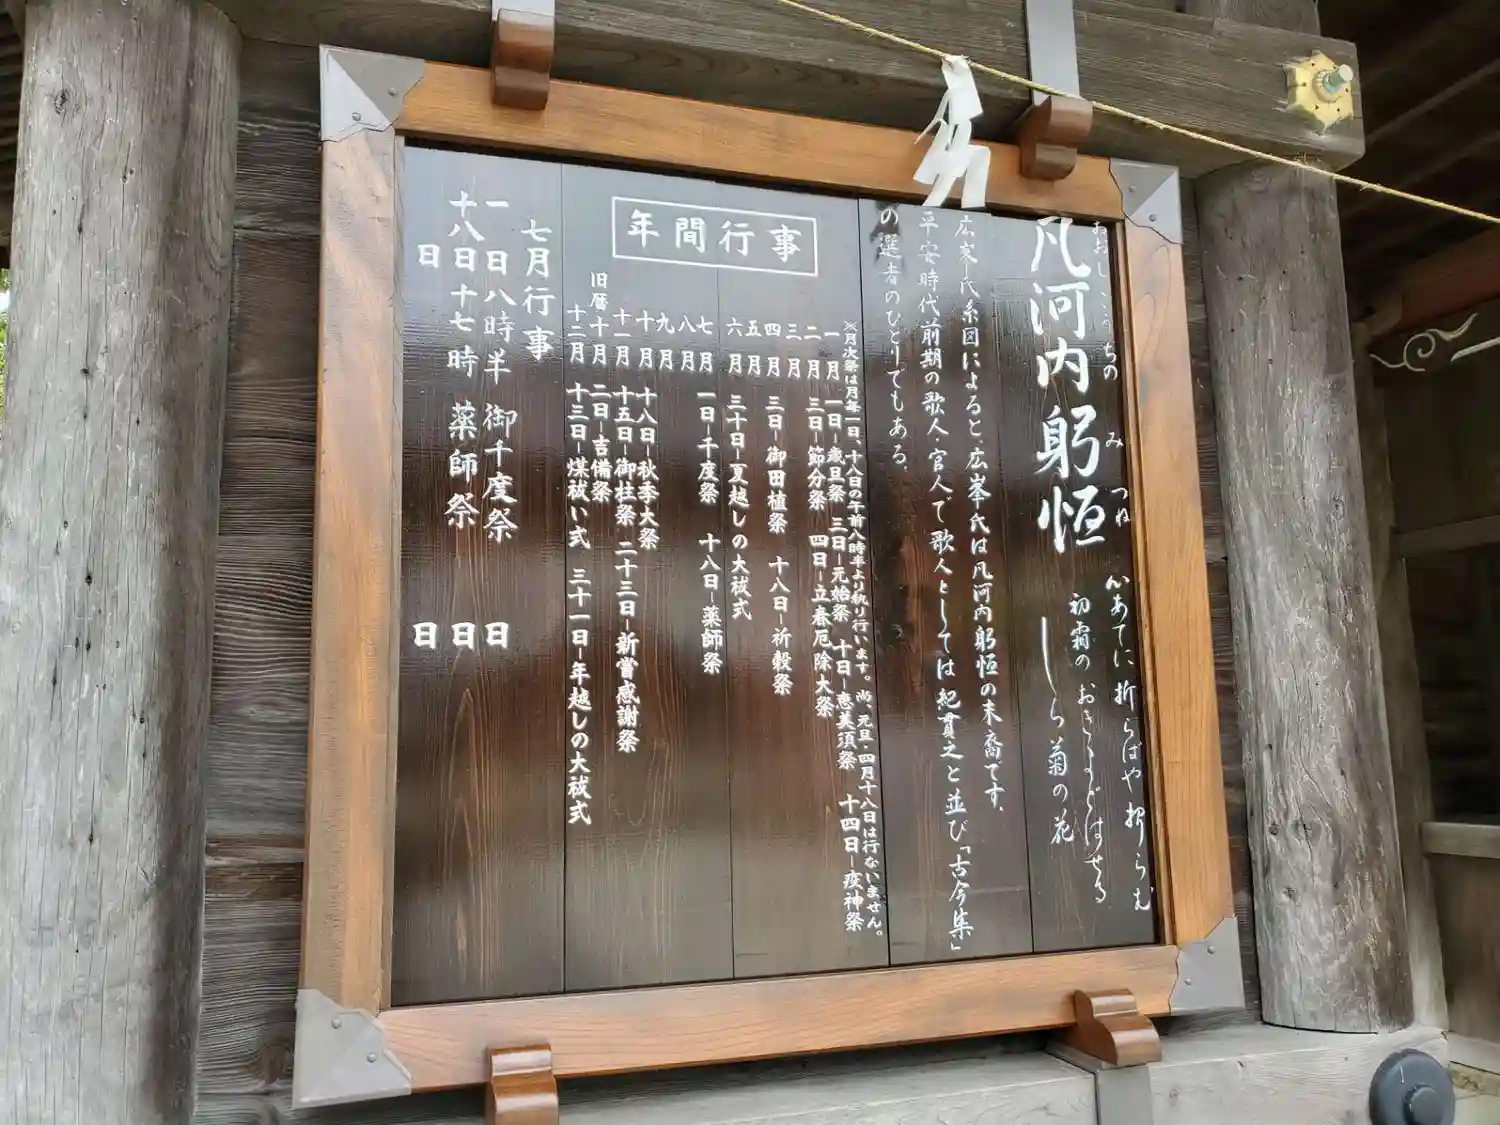 おおしこうちのみつね
凡河内躬恒
心あてに折らばや折らむ
初霜のおきまどはせる
しら菊の花
広峯氏系図によると、広峯氏は凡河内躬恒の末裔です。
平安時代前期の歌人・官人で歌人としては紀貫之と並び「古今集」
の選者のひとりでもある。
年間行事
※月次祭は月毎一日、十八日の午前八時半より執り行います。尚、元旦・四月十八日は行ないません。
一月 一日-歳旦祭 三日-元始祭 十日-恵美須祭 十四日-疫神祭
二月 三日-節分祭 四日-立春厄除大祭
三月
四月 三日-御田植祭 十八日-祈穀祭
五月
六月 三十日-夏越しの大祓式
七月 一日-千度祭 十八日-薬師祭
八月
九月
十月 十八日-秋季大祭
十一月 十五日-御柱祭 二十三日-新嘗感謝祭
旧暦十月 二日-吉備祭
十二月 十三日-煤祓い式 三十一日-年越しの大祓式
七月行事
一日八時半 御千度祭 日
十八日十七時 薬師祭 日
日 日